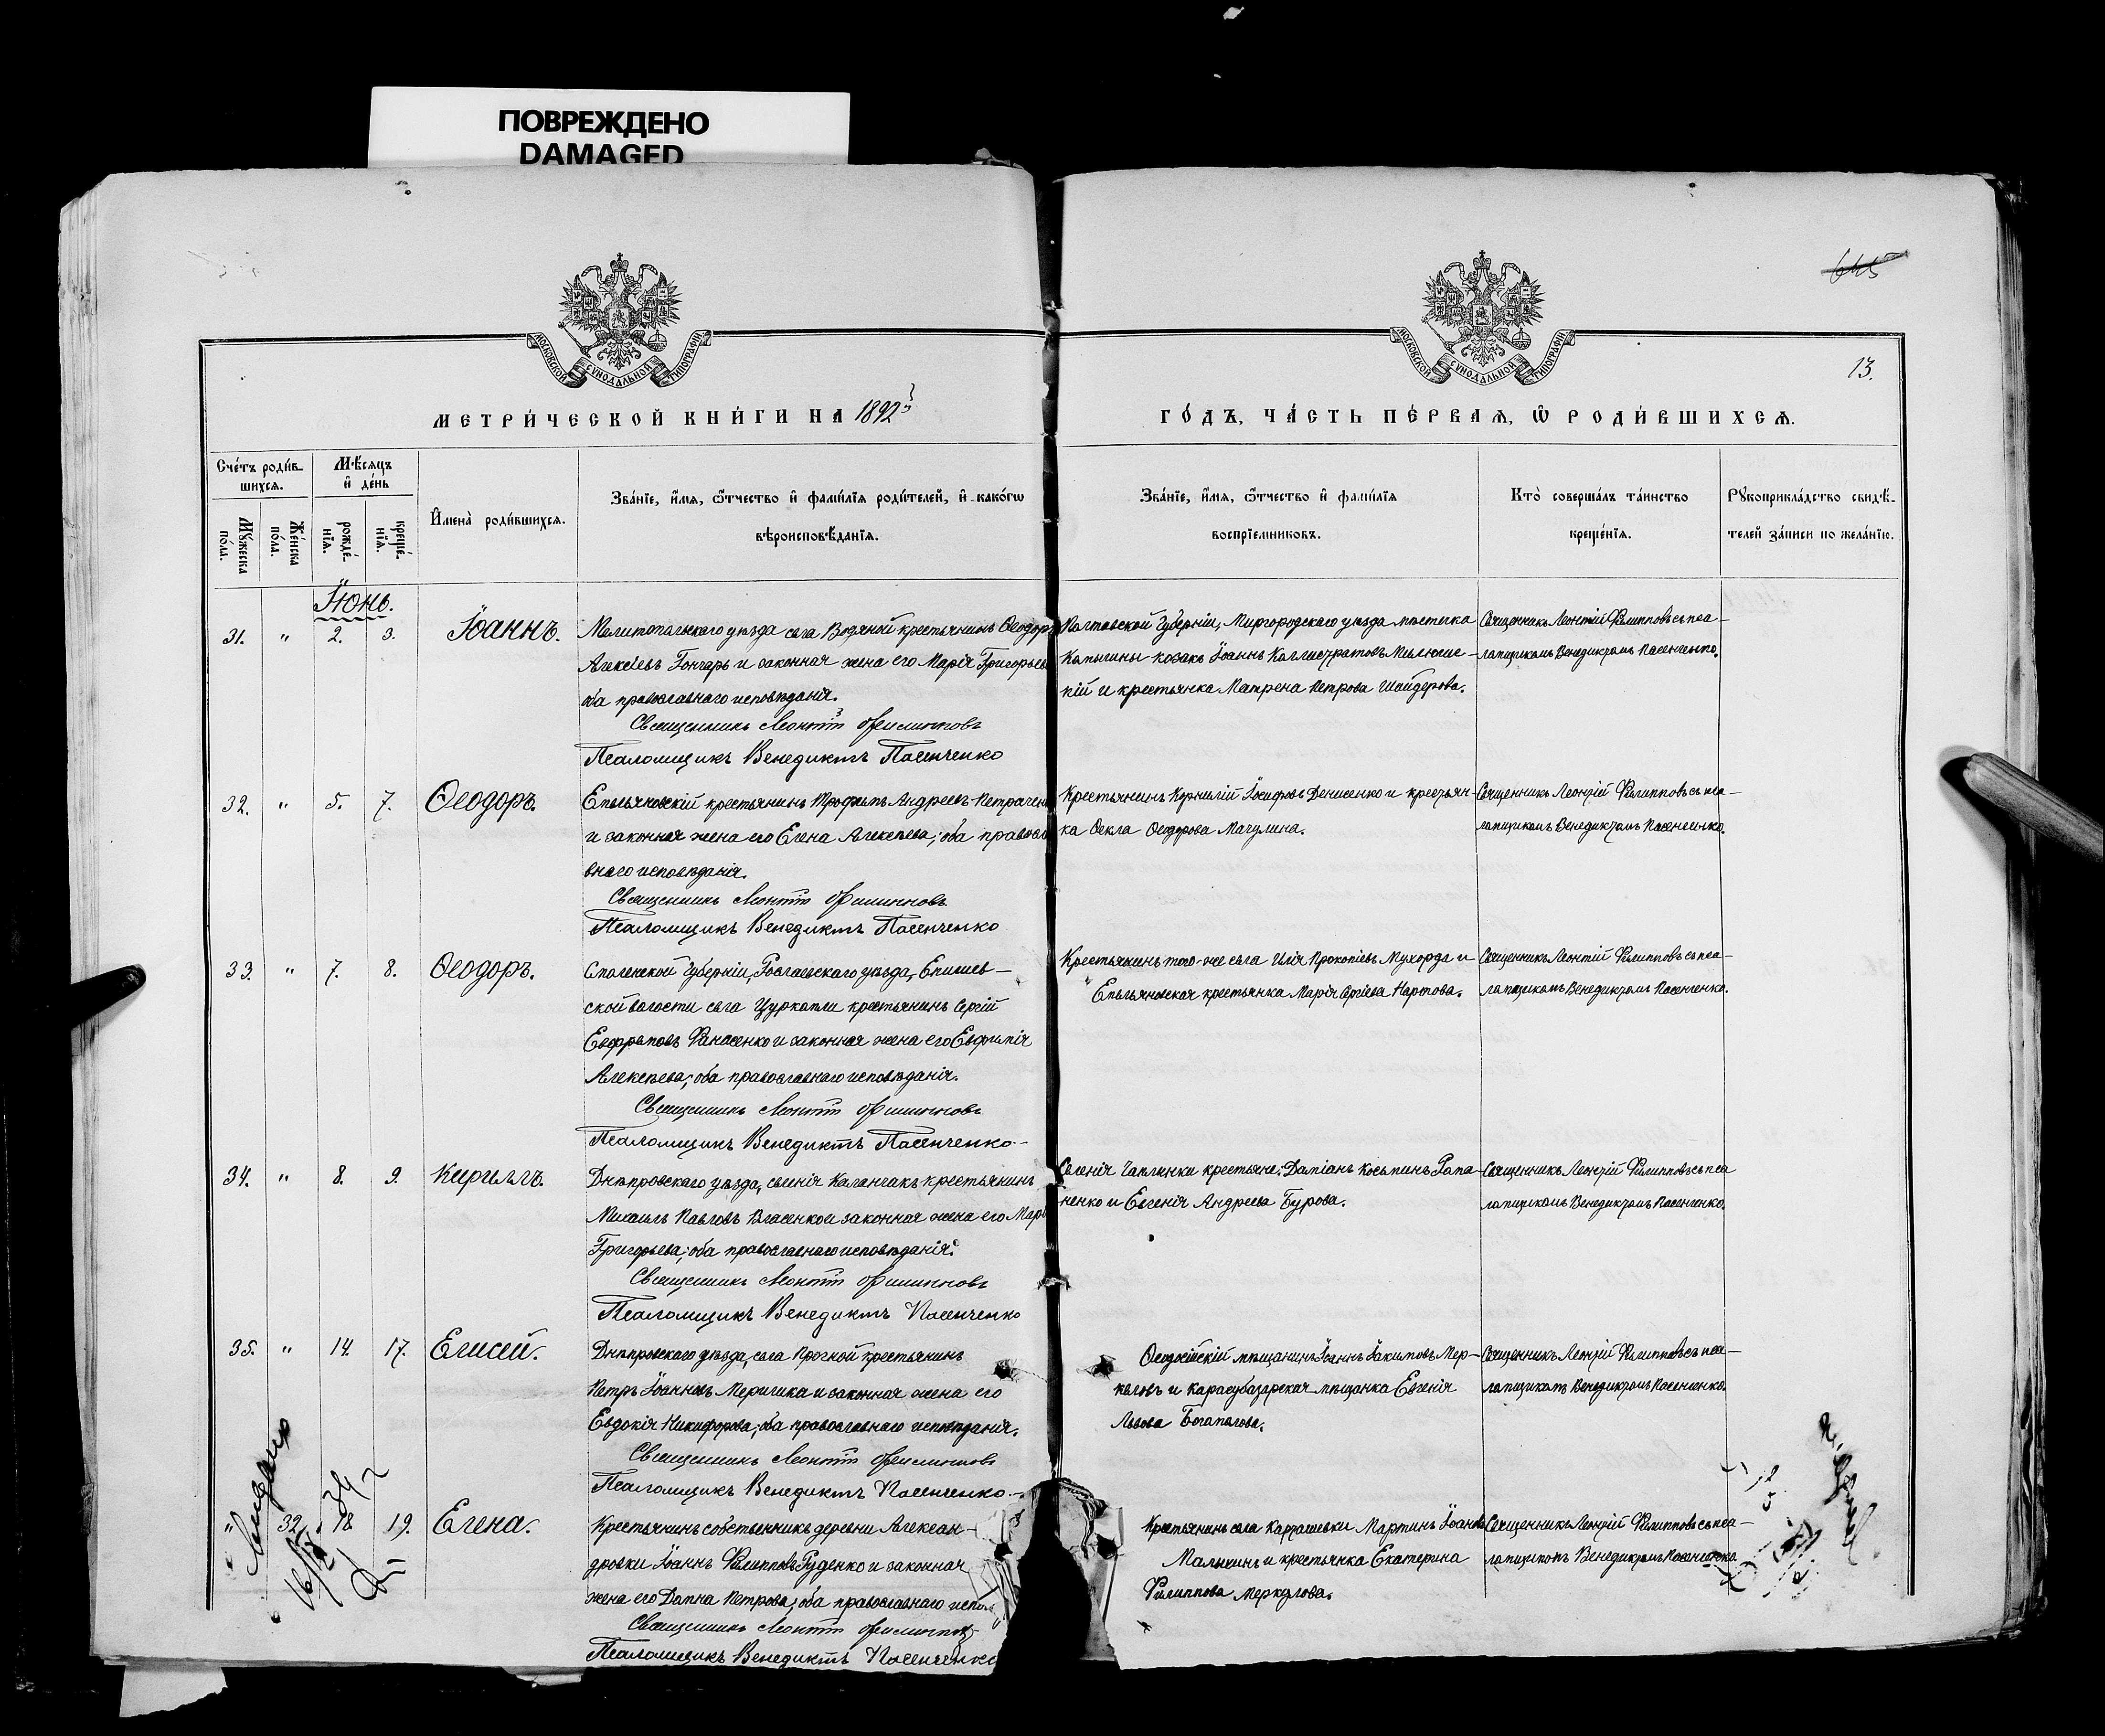 ПОВРЕЖДЕНО
DAMAGED
645
13.
МОСКОВСКОЙ СѴНОДАЛЬНОЙ ТИПОГРАФІИ
МОСКОВСКОЙ СѴНОДАЛЬНОЙ ТИПОГРАФІИ
МЕТРИ́ЧЕСКОЙ КНИ́ГИ НА 1892
ГО́ДЪ, ЧА́СТЬ ПЕ́РВАѦ, Ѡ҆ РОДИ́ВШИХСѦ.
Сче́тъ роди́в-
шихсѧ.
Мꙋ́жеска по́ла.
Же́нска по́ла.
Мѣ́сѧцъ
и҆ де́нь
рожде́-
нїѧ.
креще́-
нїѧ.
И҆мена̀ роди́вшихсѧ.
Зва́нїе, и҆́мѧ, ѻ҆́тчество и҆ фами́лїѧ роди́телей, и҆ како́гѡ
вѣроисповѣ́данїѧ.
Зва́нїе, и҆́мѧ, ѻ҆́тчество и҆ фами́лїѧ
воспрїе́мниковъ.
Кто̀ соверша́лъ та́инство
креще́нїѧ.
Рꙋкоприкла́дство свидѣ́-
телей за́писи по жела́нїю.
Іюнь.
31. " 2. 3. Іоаннъ.
Мелитопольскаго уѣзда села Водяной крестьянинъ Ѳеодоръ
Алексіевъ Гончаръ и законная жена его Марія Григорьева
оба православнаго исповѣданія.
Священникъ Леонтій Филипповъ
Псаломщикъ Венедиктъ Пасенченко
Полтавской Губерніи, Миргородскаго уѣзда мѣстечка
козакъ Іоаннъ Каллистратовъ
кій и крестьянка Матрена Петрова Шайдерова.
Священникъ Леонтій Филипповъ съ пса-
ломщикомъ Венедиктомъ Пасенченко.
32. " 5. 7. Ѳеодоръ.
Емельяновскій крестьянинъ Трофимъ Андреевъ
и законная жена его Елена Алексѣева; оба правосла
внаго исповѣданія.
Священникъ Леонтій Филипповъ
Псаломщикъ Венедиктъ Пасенченко
Крестьянинъ Корнилій Іосифовъ Денисенко и крестьян-
ка Ѳекла Ѳеодорова Мачулина.
Священникъ Леонтій Филипповъ съ пса-
ломщикомъ Венедиктомъ Пасенченко.
33. " 7. 8. Ѳеодоръ.
Смоленской Губерніи, Рославскаго уѣзда,
ской волости села крестьянинъ Сергій
и законная жена его Евфимія
Алексѣева; оба православнаго исповѣданія.
Священникъ Леонтій Филипповъ
Псаломщикъ Венедиктъ Пасенченко.-
Крестьянинъ того-же села Илія Прокопіевъ Мухорда и
Емельяновская крестьянка Марія Сергіева Нартова.
Священникъ Леонтій Филипповъ съ пса-
ломщикомъ Венедиктомъ Пасенченко.
34. " 8. 9. Кириллъ.
Днѣпровскаго уѣзда, селенія Каланчакъ крестьянинъ
Михаилъ Павловъ Власенко и законная жена его Марі
Григорьева; оба православнаго исповѣданія.
Священникъ Леонтій Филипповъ
Псаломщикъ Венедиктъ Пасенченко
Селенія Чаплинки крестьяне: Даміанъ Косьминъ Рома-
ненко и Евгенія Андреева Бурова.
Священникъ Леонтій Филипповъ съ пса
ломщикомъ Венедиктомъ Пасенченко.
35. " 14. 17. Елисей.
Днѣпровскаго уѣзда, села Прогной крестьянинъ
Петръ Іоанновъ и законная жена его
Евдокія Никифорова; оба православнаго исповѣданія.
Священникъ Леонтій Филипповъ
Псаломщикъ Венедиктъ Пасенченко.-
Ѳеодосійскій мѣщанинъ Іоаннъ Іакимовъ Мер-
куловъ и карасубазарская мѣщанка Евгенія
Львова Богаполова.
Священникъ Леонтій Филипповъ съ пса-
ломщикомъ Венедиктомъ Пасенченко.
" 32. 18. 19. Елена.
Крестьянинъ собственникъ деревни Александ-
дровки Іоаннъ Филипповъ Руденко и законная
жена его Домна Петрова; оба православнаго испо
Священникъ Леонтій Филипповъ
Псаломщикъ Венедиктъ Пасенченко
Крестьянинъ села Мартинъ Іоанновъ
Малыхинъ и крестьянка Екатерина
Филиппова Меркулова.
Священникъ Леонтій Филипповъ съ пса-
ломщикомъ Венедиктомъ Пасенченко